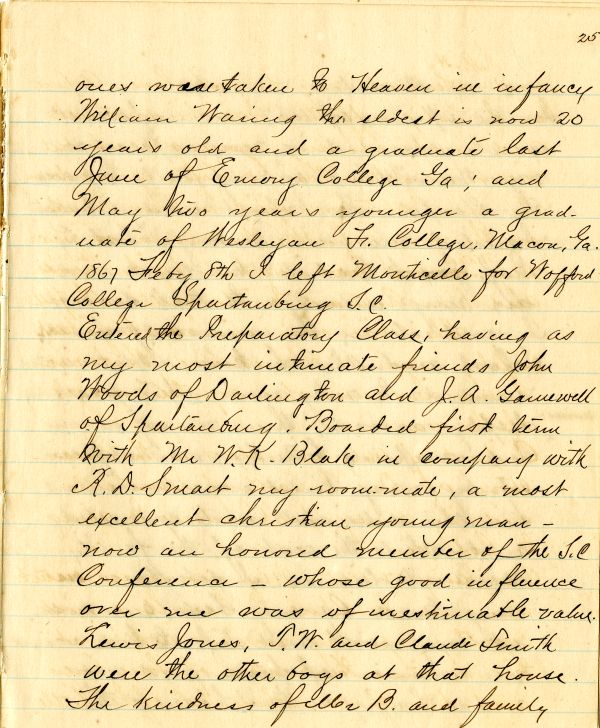 25
ones were taken to Heaven in infancy
William Waring the eldest is now 20
years old and a graduate last
June of Emory College Ga; and
May two years younger a grad-
uate of Wesleyan F. College, Macon, Ga.
1867 Feby 8th I left Monticello for Wofford
College Spartanburg S.C.
Entered the Preparatory Class, having as
my most intimate friends John
Woods of Darlington and J. A. Gamewell
of Spartanburg. Boarded first term
with Mr W. K. Blake in company with
R. D. Smart my room-mate, a most
excellent christian young man –
now an honored member of the S.C
Conference – whose good influence
over me was of inestimable value.
Lewis Jones, T. W. and Claude Smith
were the other boys at that house.
The kindness of Mr B. and family